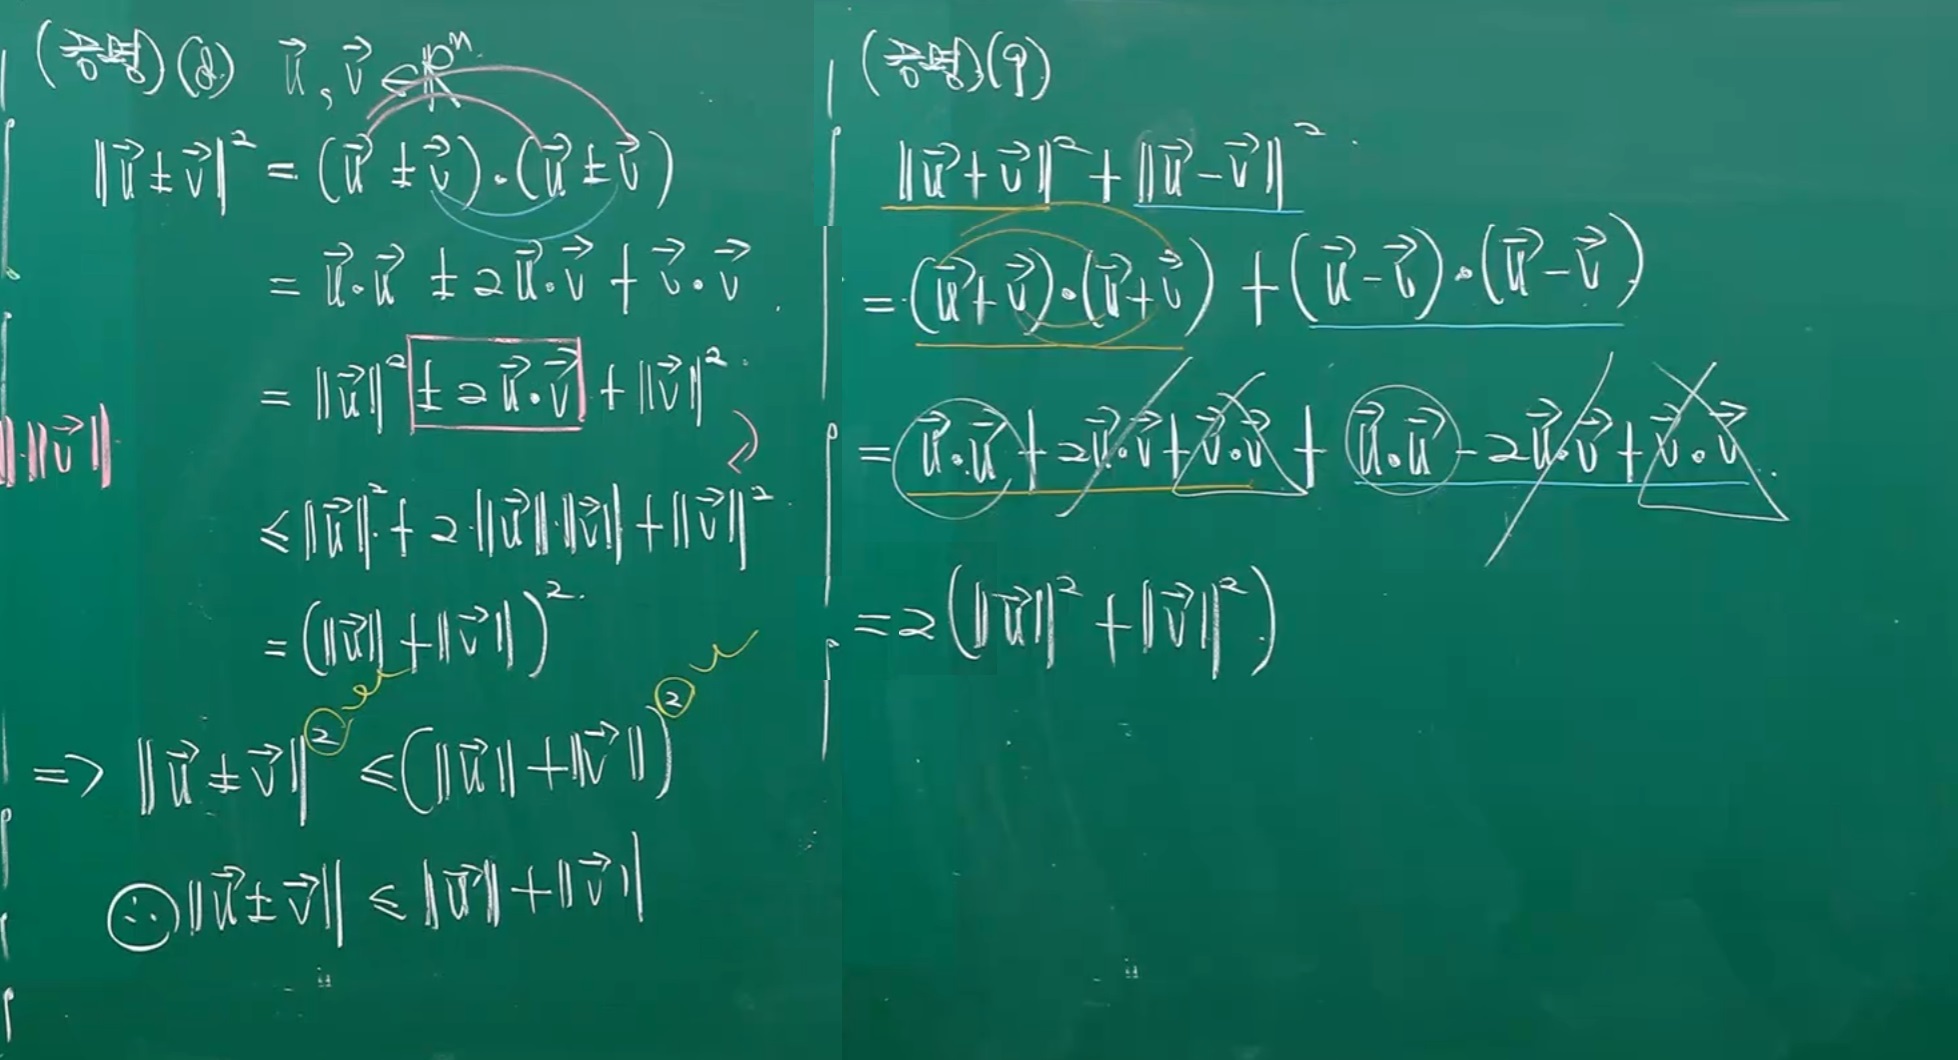 (증명)(d) u⃗, v⃗ ∈ ℝⁿ
‖u⃗ ± v⃗‖² = (u⃗ ± v⃗)·(u⃗ ± v⃗)
= u⃗·u⃗ ± 2u⃗·v⃗ + v⃗·v⃗
= ‖u⃗‖² ± 2u⃗·v⃗ + ‖v⃗‖²
‖·‖v⃗‖
≤ ‖u⃗‖² + 2·‖u⃗‖·‖v⃗‖ + ‖v⃗‖²
= (‖u⃗‖ + ‖v⃗‖)²
=> ‖u⃗ ± v⃗‖² ≤ (‖u⃗‖ + ‖v⃗‖)²
∴ ‖u⃗ ± v⃗‖ ≤ ‖u⃗‖ + ‖v⃗‖
(증명)(9)
‖u⃗ + v⃗‖² + ‖u⃗ - v⃗‖²
= (u⃗ + v⃗)·(u⃗ + v⃗) + (u⃗ - v⃗)·(u⃗ - v⃗)
= u⃗·u⃗ + 2u⃗·v⃗ + v⃗·v⃗ + u⃗·u⃗ - 2u⃗·v⃗ + v⃗·v⃗
= 2(‖u⃗‖² + ‖v⃗‖²)